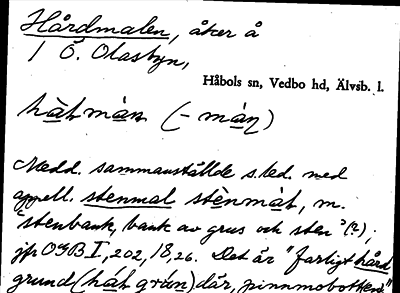 Hårdmalen, åker å
1 Ö. Olasbyn,
Håbols sn, Vedbo hd, Älvsb. l.
Medd. sammanställde s.led. med
appell. stenmal stènmàt, m.
"stenbank, bank av grus och sten"(?);
jfr OGB I, 202, 18, 26. Det är "farligt hård
grund (hàt grún) där, pinnmobotten"